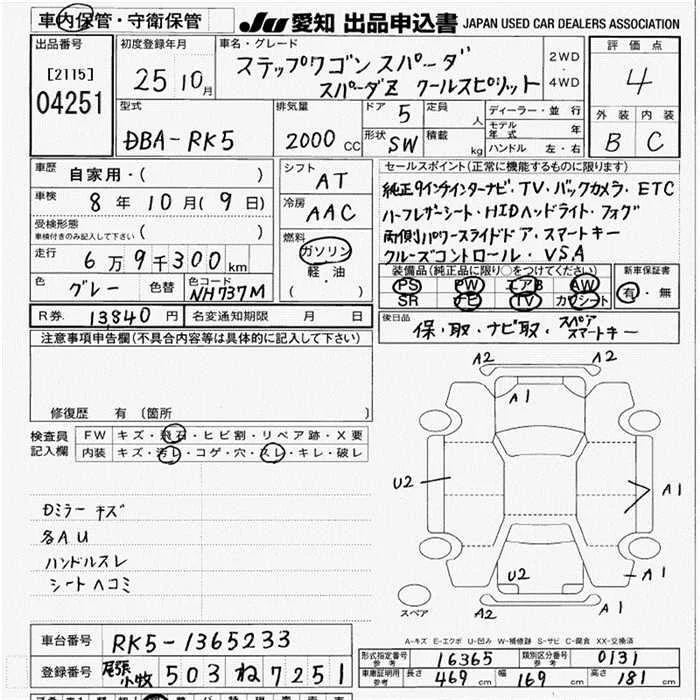 車内保管・守衛保管
JU 愛知 出品申込書 JAPAN USED CAR DEALERS ASSOCIATION
出品番号
[2115]
04251
初度登録年月
25 10月
車名・グレード
ステップワゴン スパーダ
スパーダZ クールスピリット
2WD
4WD
評価点
4
外装 内装
B C
型式
DBA-RK5
排気量
2000 CC
ドア 5
形状 SW
定員 人
積載 kg
ディーラー・並行
モデル年式 年
ハンドル 左・右
車歴
自家用・( )
車検
8年10月(9日)
受検形態
車検付きのみ記入して下さい ( )
走行
6万9千300km
色 グレー 色替
色コード NH737M
シフト
AT
冷房
AAC
燃料
ガソリン
軽・油
( )
セールスポイント(正常に機能するものに限ります)
純正9インチインターナビ・TV・バックカメラ・ETC
ハーフレザーシート・HIDヘッドライト・フォグ
両側パワースライドドア・スマートキー
クルーズコントロール・VSA
装備品(純正品に限り○をつけてください)
PS PW エアB AW
SR ナビ TV カワシート
新車保証書
有・無
R券. 13840円
名変通知期限 月 日
後日品
保・取・ナビ取・スペアスマートキー
注意事項申告欄(不具合内容等は具体的に記入して下さい)
修復歴 有(箇所 )
検査員記入欄
FW キズ・飛石・ヒビ割・リペア跡・X要
内装 キズ・汚レ・コゲ・穴・スレ・キレ・破レ
Dミラー キズ
各AU
ハンドルスレ
シートヘコミ
A2 A2
A1
U2
A1
U2
A1
A2 A1
スペア
A-キズ E-エクボ U-凹み W-補修跡 S-サビ C-腐食 XX-交換済
車台番号 RK5-1365233
登録番号 尾張小牧 503 ね 7251
形式指定番号 参考 16365
類別区分番号 参考 0131
車庫証明用 参考 長さ 469cm 幅 169cm 高さ 181cm